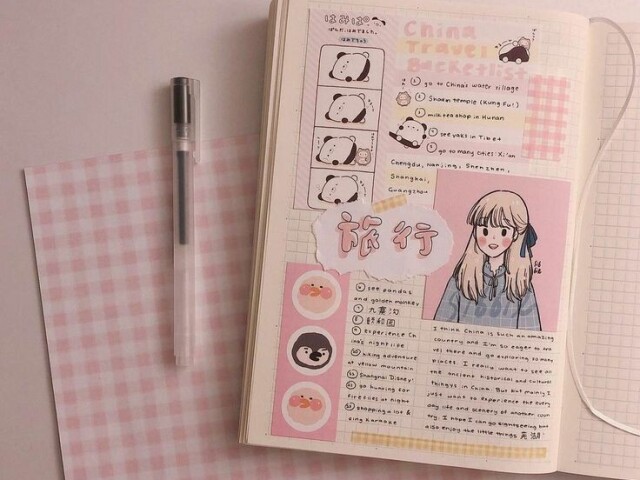 はみぱ。
China
Travel
Bucketlist
① go to China's water village
② Shaolin temple (Kung Fu!)
③ milk tea shop in Hunan
④ see yaks in Tibet
⑤ go to many cities: Xi'an
Chengdu, Nanjing, Shenzhen,
Shanghai,
Guangzhou
旅行
⑥ see pandas
and golden monkey
⑦ 九寨沟
⑧ 颐和园
⑨ experience Chi
na's nightlife
⑩ hiking adventure
at yellow mountain
⑪ Shanghai Disney!
⑫ go hunting for
fireflies at night
⑬ shopping a lot &
sing Karaoke
I think China is such an amazing
country and I'm so eager to tra
vel there and go exploring so many
places. I really want to see all
the ancient historical and cultural
things in China. But mainly I
just want to experience the every
day life and scenery of another coun
try. I hope I can go sightseeing but
also enjoy the little things